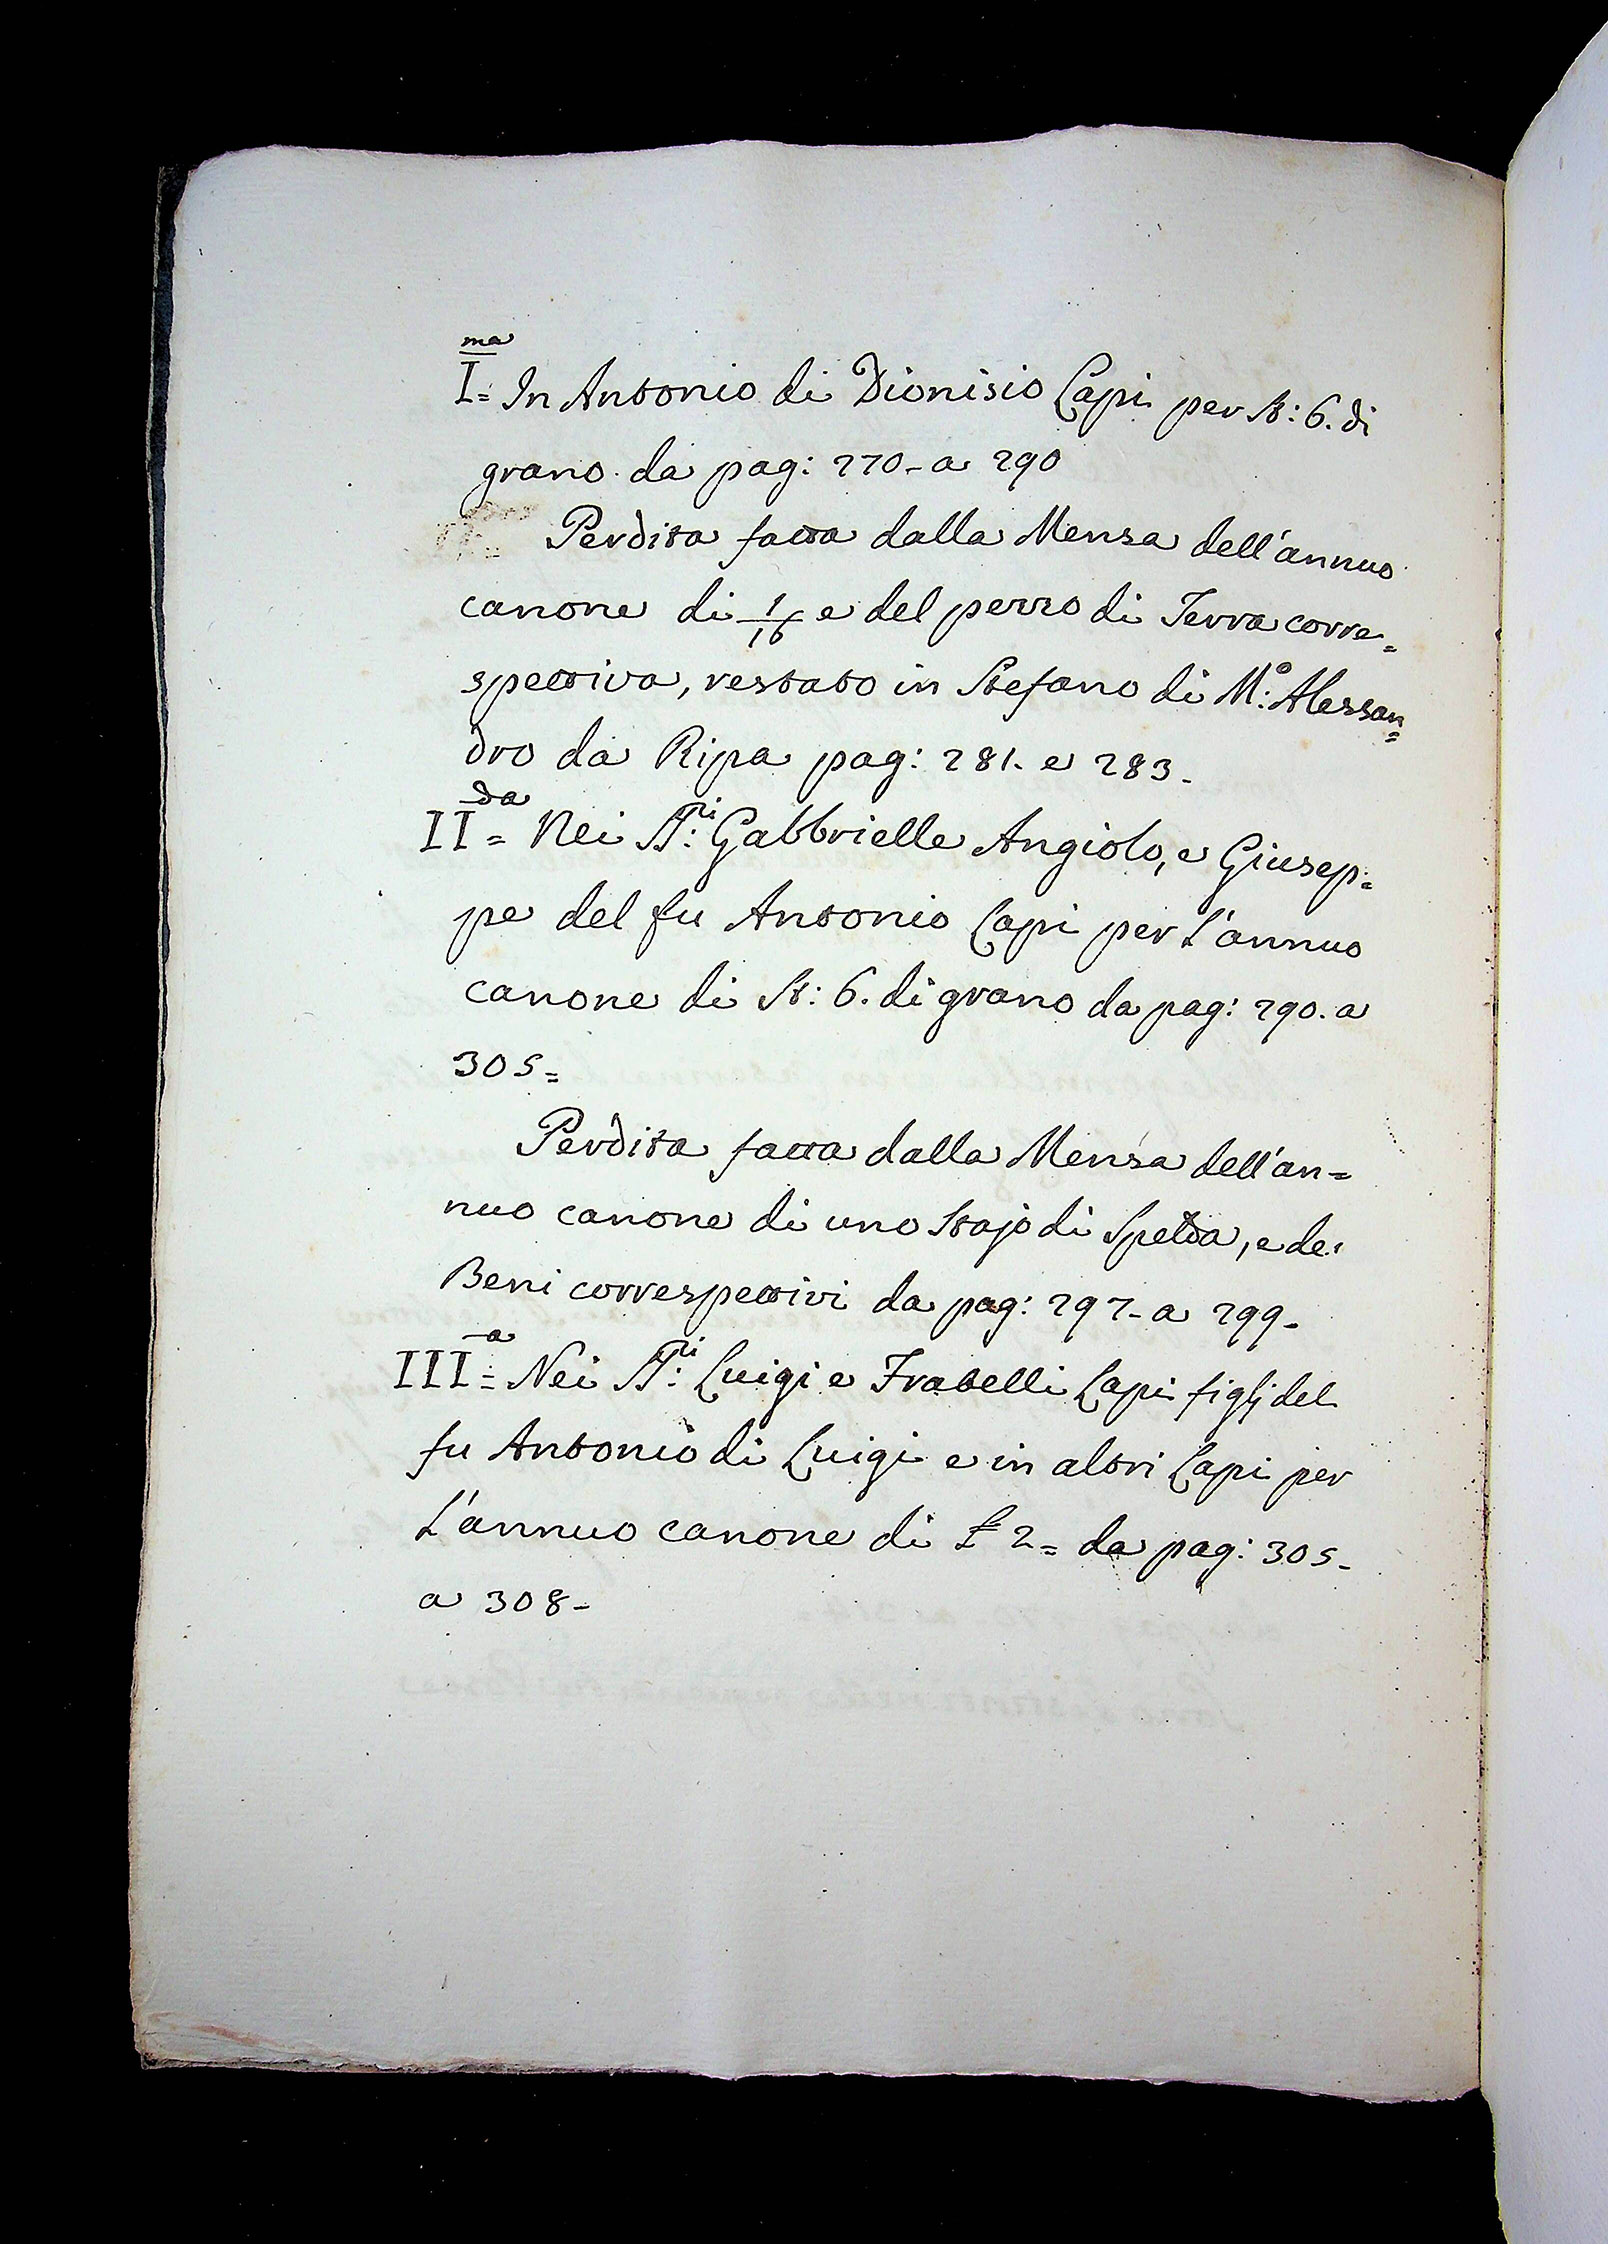 I.ma= In Antonio di Dionisio Lapi per St: 6. di
grano da pag: 270- a 290
Perdita fatta dalla Mensa dell'annuo
canone di 1/16 e del pezzo di Terra corre=
spettiva, restato in Stefano di M:o Alessan=
dro da Ripa pag: 281. e 283-
II.da= Nei SS:ri Gabbrielle Angiolo, e Giusep=
pe del fu Antonio Lapi per L'annuo
canone di St: 6. di grano da pag: 290. a
305=
Perdita fatta dalla Mensa dell'an=
nuo canone di uno Stajo di Spelda, e de'
Beni correspettivi da pag: 297- a 299-
III.a= Nei SS:ri Luigi e Fratelli Lapi figlj del
fu Antonio di Luigi e in altri Lapi per
L'annuo canone di £ 2= da pag: 305-
a 308-